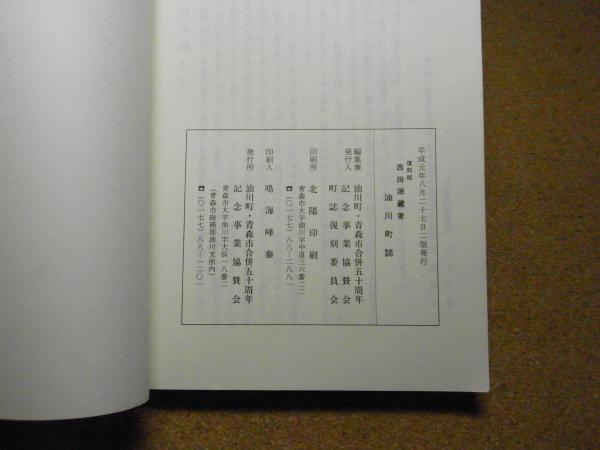 平成元年八月二十七日二版発行
復刻版
西田源藏著
油川町誌
編集兼
発行人
油川町・青森市合併五十周年
記念事業協賛会
町誌復刻委員会
印刷所
北陽印刷
青森市大字油川字中道三六番二二
☎(〇一七七)八八―二八八一
印刷人
鳴海峰泰
発行所
油川町・青森市合併五十周年
記念事業協賛会
青森市大字油川字大浜一八番二
(青森市総務部油川支所内)
☎(〇一七七)八八―一二〇一